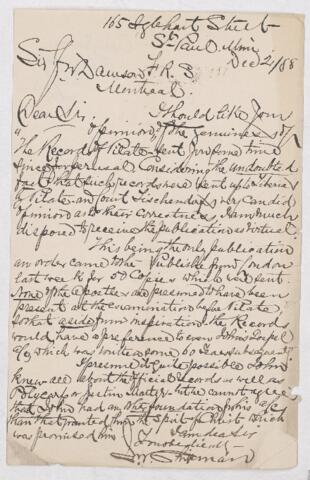 165 Iglehart Street
St Paul Minn
Dec 21/88
Sir J W Dawson F R S
Montreal
Dear Sir
I should like your
opinion of the genuineness of
"The Record of Pilate sent you some time
since for perusal. Considering the undoubted
fact that such records were sent up to Tiberius
by Pilate and your Tischendorf's candid
opinion as to their correctness I am much
disposed to receive the publication as virtual
This being the only publication
an order came to the Publisher from London
last week for 50 Copies which were sent
None of the Apostles are presumed to have been
present at the examination by Pilate
so that aside from inspiration the Records
would have a preference to even John's Gospel
which was written some 60 years subsequent
I presume it quite possible John
knew all about the Official records as well as
Polycarp or Justin Martyr but we cannot agree
that John had any other foundation for his
than that granted him the Spirit of Christ which
was promised him
I am dear Sir
Yours obediently